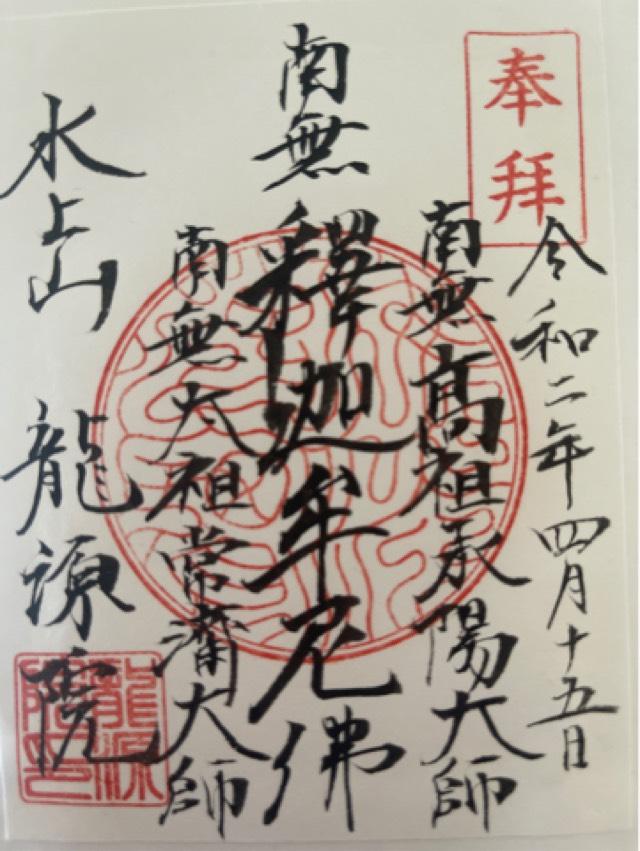 奉拝
令和二年四月十五日
南無高祖承陽大師
南無釋迦牟尼佛
南無太祖常濟大師
水上山 龍源院
龍源
院印